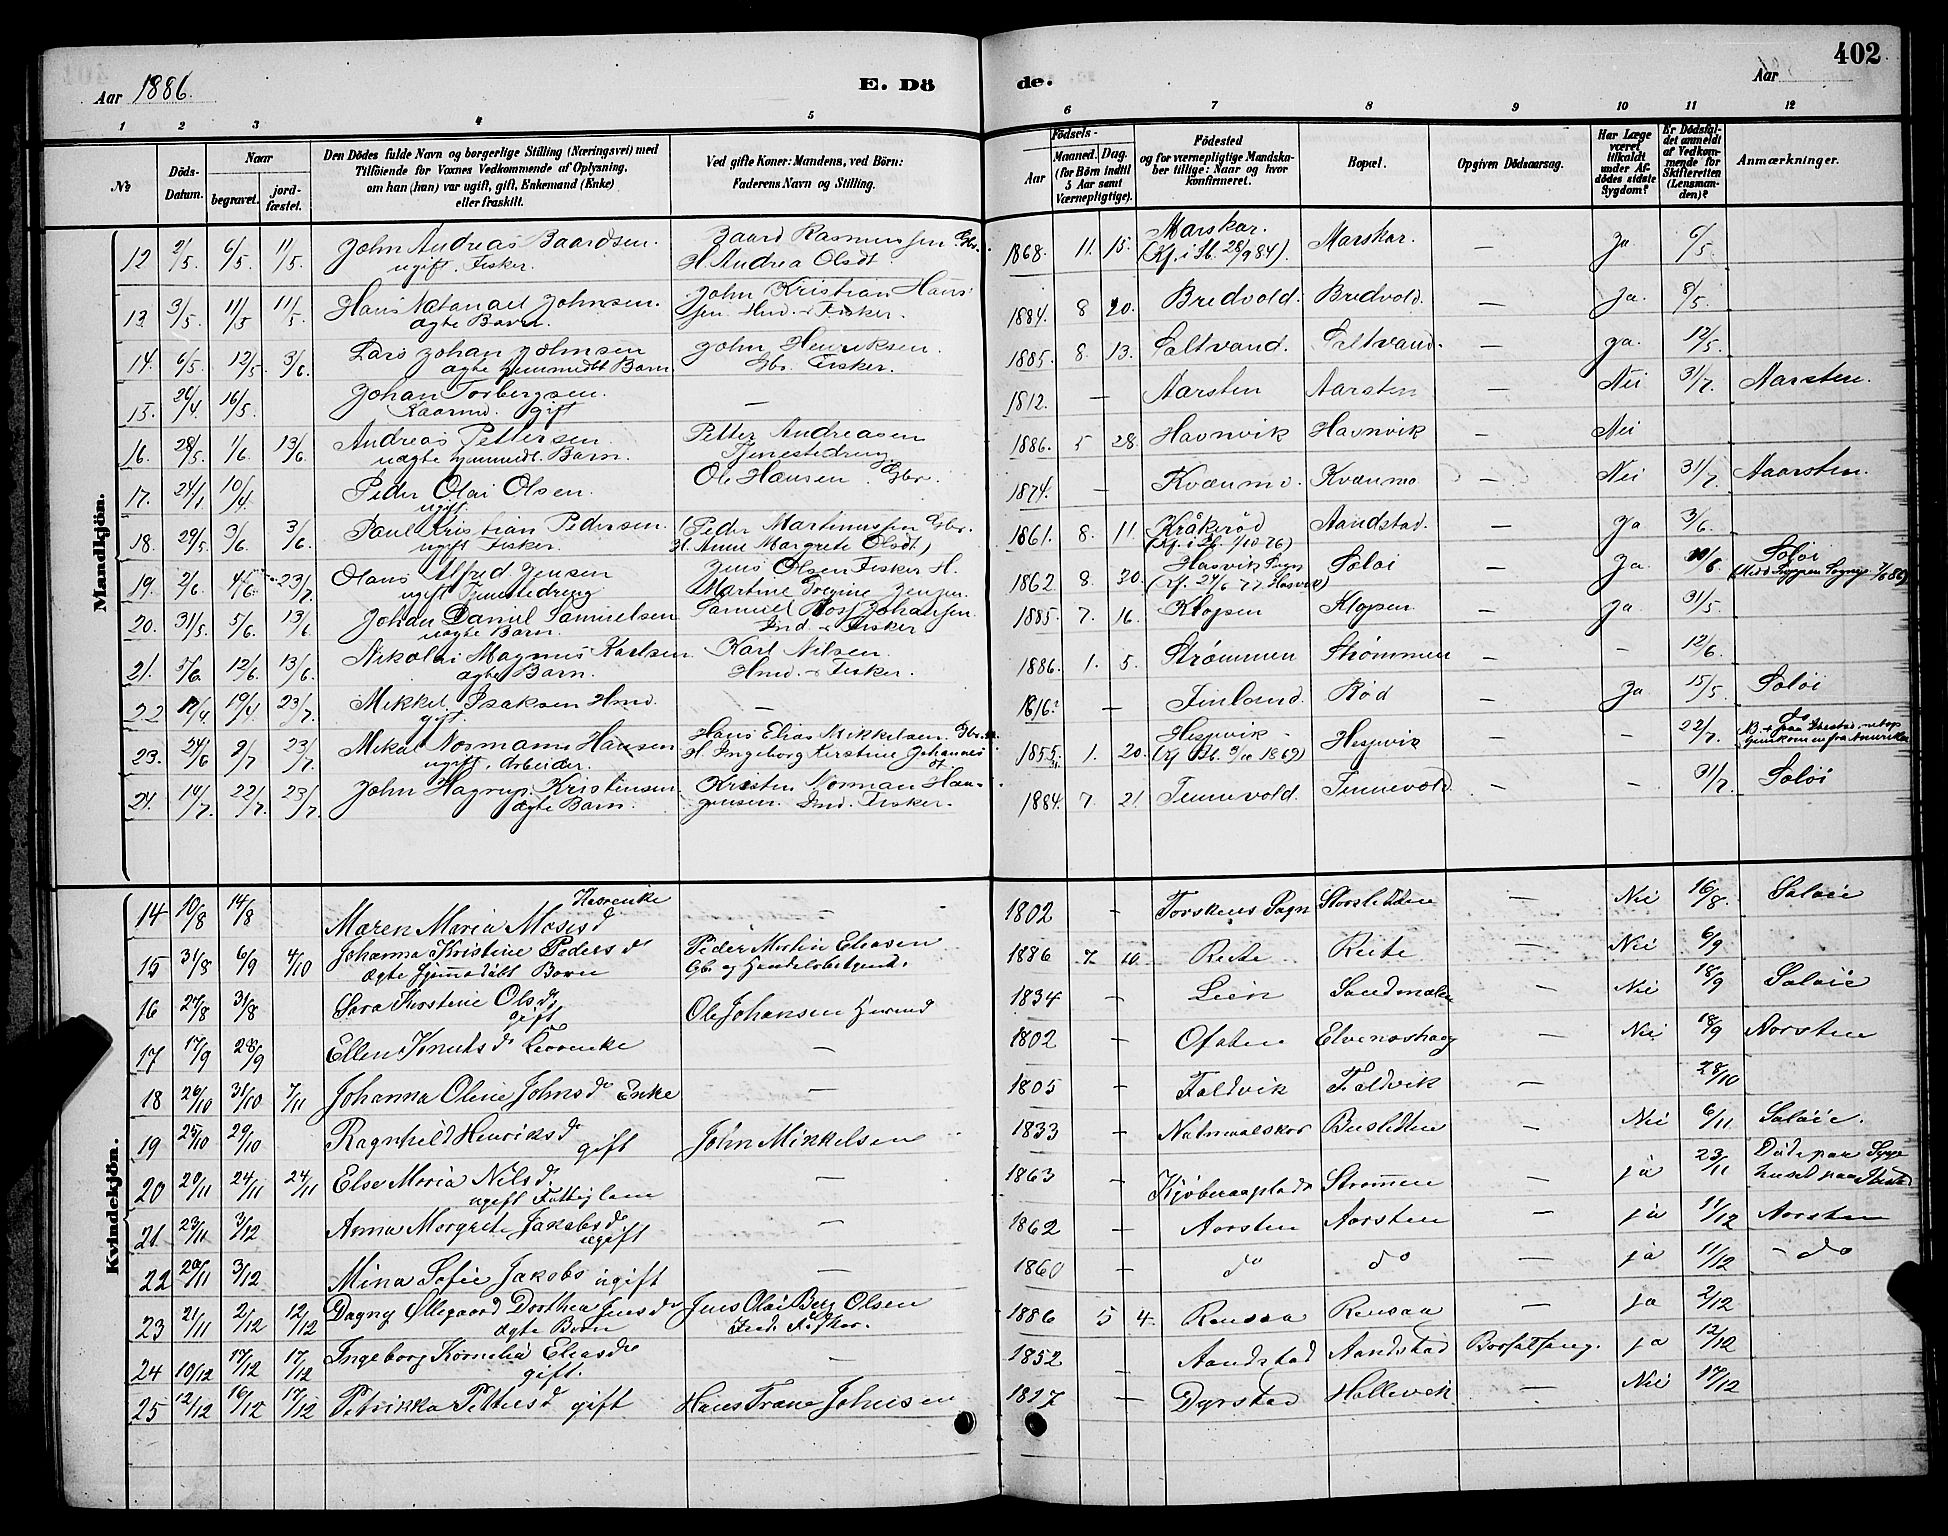 Aar 1886.
E. Dö
de.
Aar
402
1 2 3 4 5 6 7 8 9 10 11 12
No
Döds-Datum.
Naar
begravet.
jord-fæstet.
Den Dödes fulde Navn og borgerlige Stilling (Næringsvei) med
Tilföiende for Voxnes Vedkommende af Oplysning,
om han (hun) var ugift, gift, Enkemand (Enke)
eller fraskilt.
Ved gifte Koner: Mandens, ved Börn:
Faderens Navn og Stilling.
Födsels-
Aar
Maaned.
Dag.
(for Börn indtil
5 Aar samt
Værnepligtige).
Födested
og for værnepligtige Mandska-
ber tillige: Naar og hvor
konfirmeret.
Bopæl.
Opgiven Dödsaarsag.
Har Læge
været
tilkaldt
under Af-
dödes sidste
Sygdom?
Er Dödsfal-
det anmeldt
af Vedkom-
mende for
Skifteretten
(Lensman-
den)?
Anmærkninger.
Mandkjön.
12 2/5. 6/5. 11/5. John Andreas Baardsen. Baard Rasmussen Gbr. 1868. 11. 15. Marskar. Marskar. — Ja 6/5.
ugift. Fisker. H. Andrea Olsdt (Kf. i Ib. 28/9 84).
13. 3/5. 11/5 11/5. Hans Natanael Johnsen. John Kristian Hans 1884. 8 20. Bredvold. Bredvold. — Ja. 8/5.
ægte Barn. sen Hmd. & Fisker.
14. 6/5 12/5. 3/6. Lars Johan Johnsen John Henriksen. 1885. 8. 13. Saltvand. Saltvand. — ja. 12/5.
ægte hjemmedt Barn Gbr. Fisker.
15. 26/4 16/5. Johan Torbergsen. — 1812. — Aarsten Aarsten — Nei 31/7. Aarsten.
Kaarmd. gift
16. 28/5. 1/6. 13/6. Andreas Pettersen. Petter Andreasen 1886. 5 28. Havnvik Havnvik — Nei
uægte hjemmedt. Barn. Tjenestedreng
17. 24/1 10/4. Peder Olai Olsen. Ole Hansen Gbr. 1874. — Kvænmo. Kvænmo — Nei 31/7. Aarsten.
ugift.
18. 29/5. 3/6. 3/6. Paul Kristian Pedersen. (Peder Martinussen Gbr. 1861. 8. 11. Kråkerød Aandstad. — Ja 3/6.
ugift Fisker. H. Anne Margrete Olsdt)
19. 2/6. 4/6. 23/7. Olaus Alfred Jensen Jens Olsen Fisker H. 1862 8. 30. Hasvik Sogn Soløi — Ja. 10/6 Soløi
ugift Tjenestedreng Martine (Kf. 24/6 77 Hasvik)
20. 31/5. 5/6. 13/6 Johan Daniel Samuelsen Samuel Johansen 1885. 7. 16. Klopsen Klopsen — Ja 31/5.
uægte Barn. Ind. & Fisker
21. 5/6. 12/6. 13/6. Nikolai Magnus Karlsen Karl Nilsen. 1886. 1. 5. Strømmen Strømmen — — 12/6.
ægte Barn. Hmd. & Fisker.
22 19/4. 23/7. Mikkel Isaksen Hmd. — 1816. Finland. Rød Ja 15/5. Soløi
gift.
23. 24/6 2/7 23/7. Mikal Normann Hansen Hans Elias Mikkelsen. Gbr. 1855. 1. 20. Hesjevik Hesjevik — 22/7. do
ugift. Arbeider. H. Ingeborg Kirstine Johannes
24. 14/7. 22/7. 23/7. John Hagrup Kristensen Kristen Norman Haa- 1884. 7. 21. Tennevold. Tennevold. — — 31/7. Soløi
ægte Barn. gensen. Ind. Fisker.
Kvindekjön.
14 10/8 14/8 Maren Maria Mosesd — 1802 — Torskens Sogn Storsletten — Nei 16/8. Soløie
15 31/8 6/9 4/10 Johanna Kristine Pedersdr Peder Martin Eliasen 1886 7 10. Reite Reite — Nei 6/9
ægte hjemmedøbt Barn Gbr og Handelsbetjent.
16 27/8 31/8 Sara Kirstine Olsdr Ole Johansen Husmd 1834 — Lein — Nei 18/9 Soløie
gift
17 17/9 28/9 Ellen Knutsdr — 1802 — Ofoten Elvenoshaug — Nei 18/9 Aorsten
18 26/10 31/10 7/11 Johanna Oline Johnsdr Enke — 1805 — Foldvik Foldvik — 28/10
19 25/10 29/10 Ragnhild Henriksdr John Mikkelsen 1833 — — Nei 6/11 Soløie.
gift
20 20/11 24/11 24/11 Else Maria Nilsdr — 1863 — Strømmen — ja 23/11 Døde paa Syge
ugift Fattiglem huset paa
21 23/11 3/12 Anna Margrete Jakobsdr — 1862 — Aorsten Aorsten — ja 11/12 Aorsten
ugift
22 29/11 3/12 Mina Sofie Jakobs ugift — 1860 — do do — ja 11/12 — do
23 21/11 2/12 12/12 Dagny Ollegaard Dorthea Jensdr Jens Olai Berg Olsen 1886 5 4 Rensaa Rensaa — ja 2/12
ægte Barn Ind. Fisker.
24 10/12 17/12 17/12 Ingeborg Kornelia Eliasdr — 1852 — Aandstad Aandstad ja 12/12
gift.
25 12/12 16/12 17/12 Petrikka Pettersd gift Hans Trane Johnsen 1827 — Dyrstad Hallevik — Nei 17/12